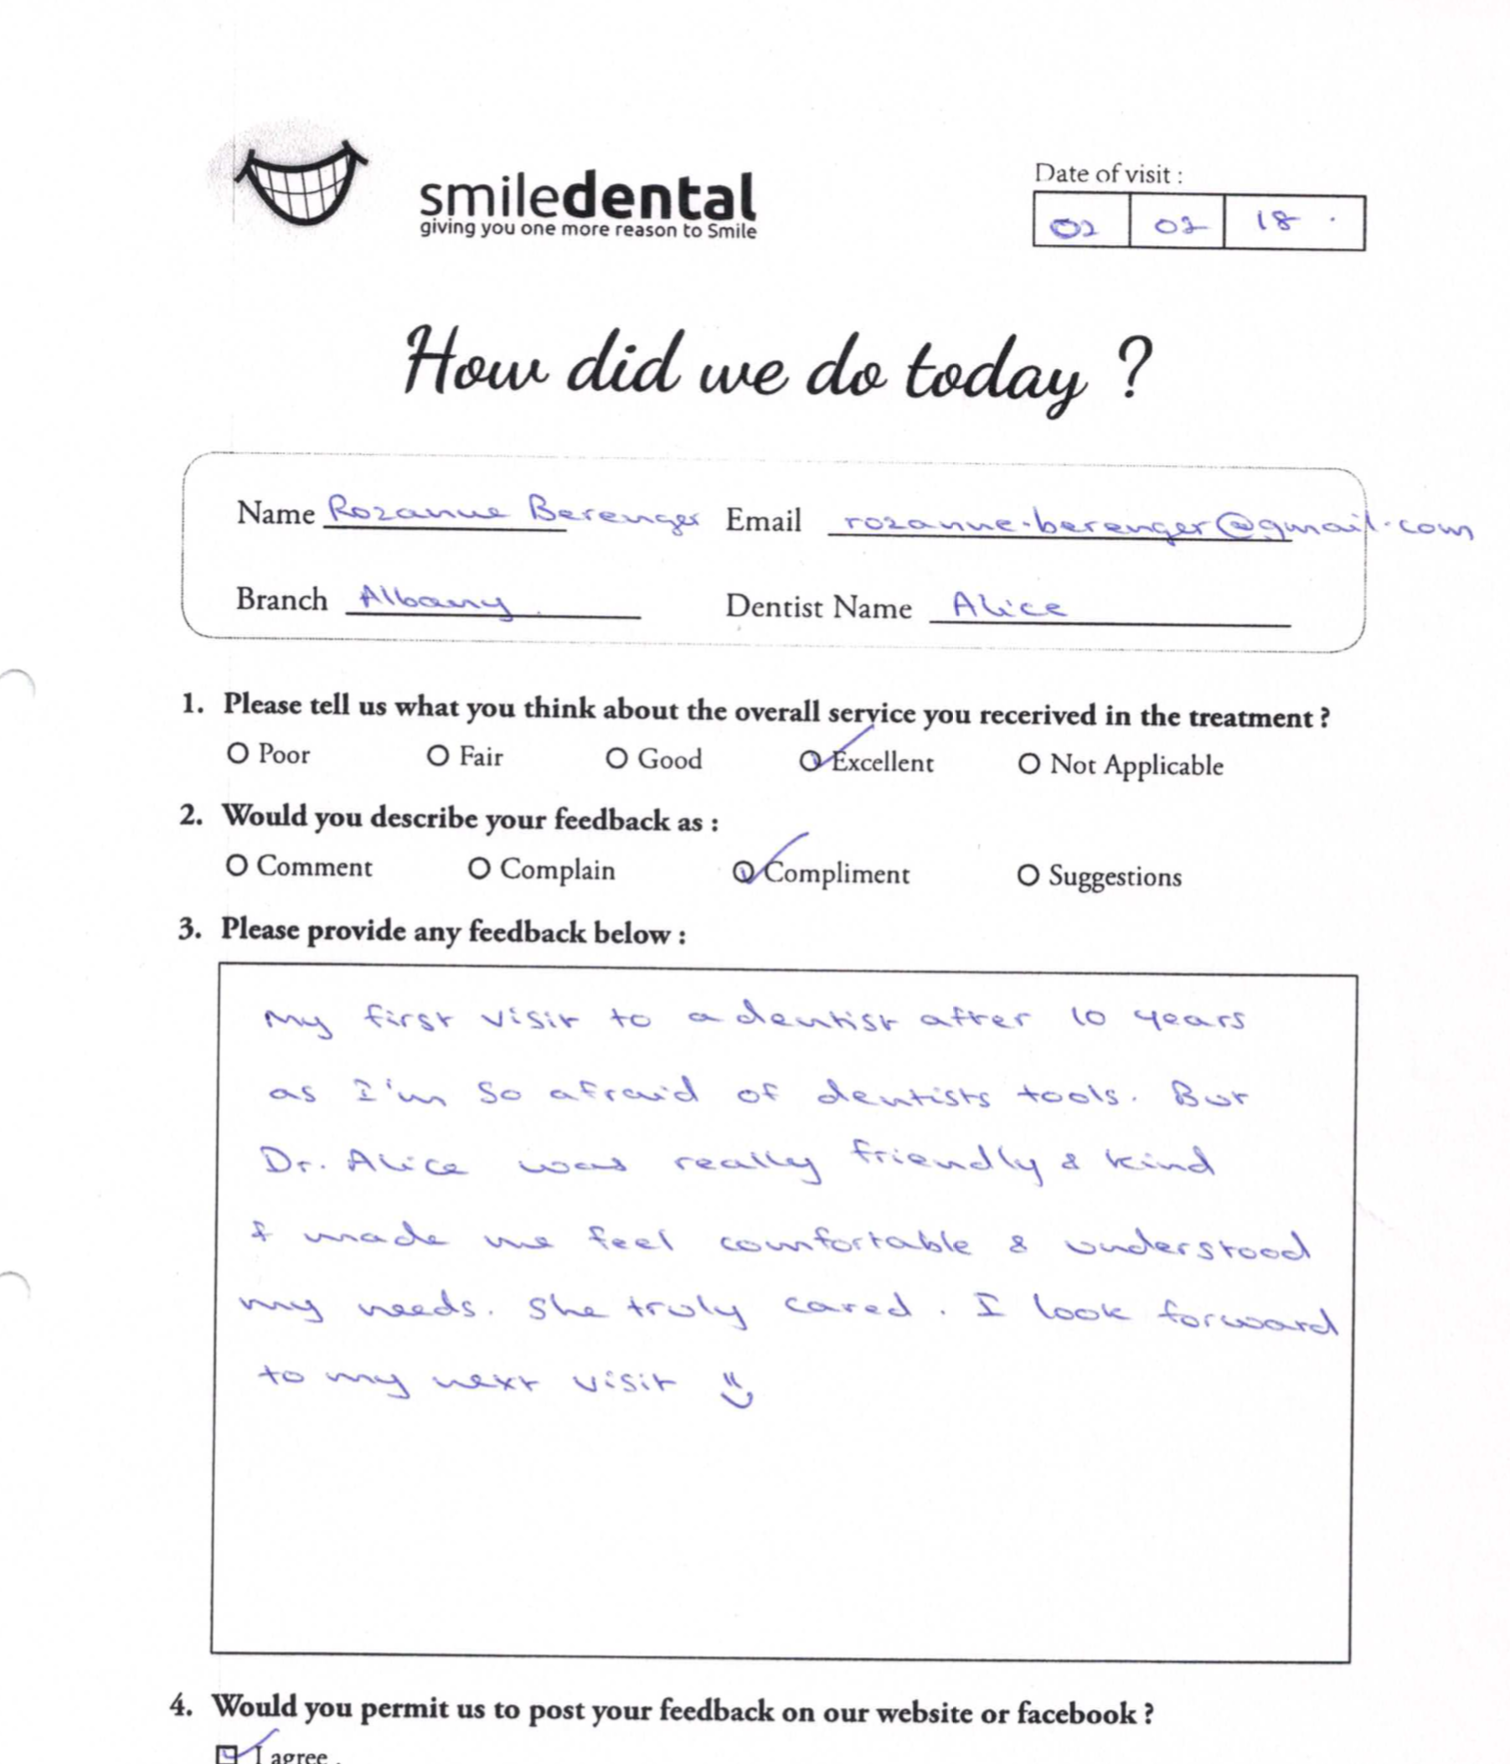 smiledental
giving you one more reason to Smile
Date of visit :
02 02 18
How did we do today ?
Name Rozanne Berenger Email rozanne.berenger@gmail.com
Branch Albany Dentist Name Alice
1. Please tell us what you think about the overall service you recerived in the treatment ?
Poor Fair Good Excellent Not Applicable
2. Would you describe your feedback as :
Comment Complain Compliment Suggestions
3. Please provide any feedback below :
My first visit to a dentist after 10 years
as I'm so afraid of dentists tools. But
Dr. Alice was really friendly & kind
& made me feel comfortable & understood
my needs. She truly cared. I look forward
to my next visit
4. Would you permit us to post your feedback on our website or facebook ?
I agree .